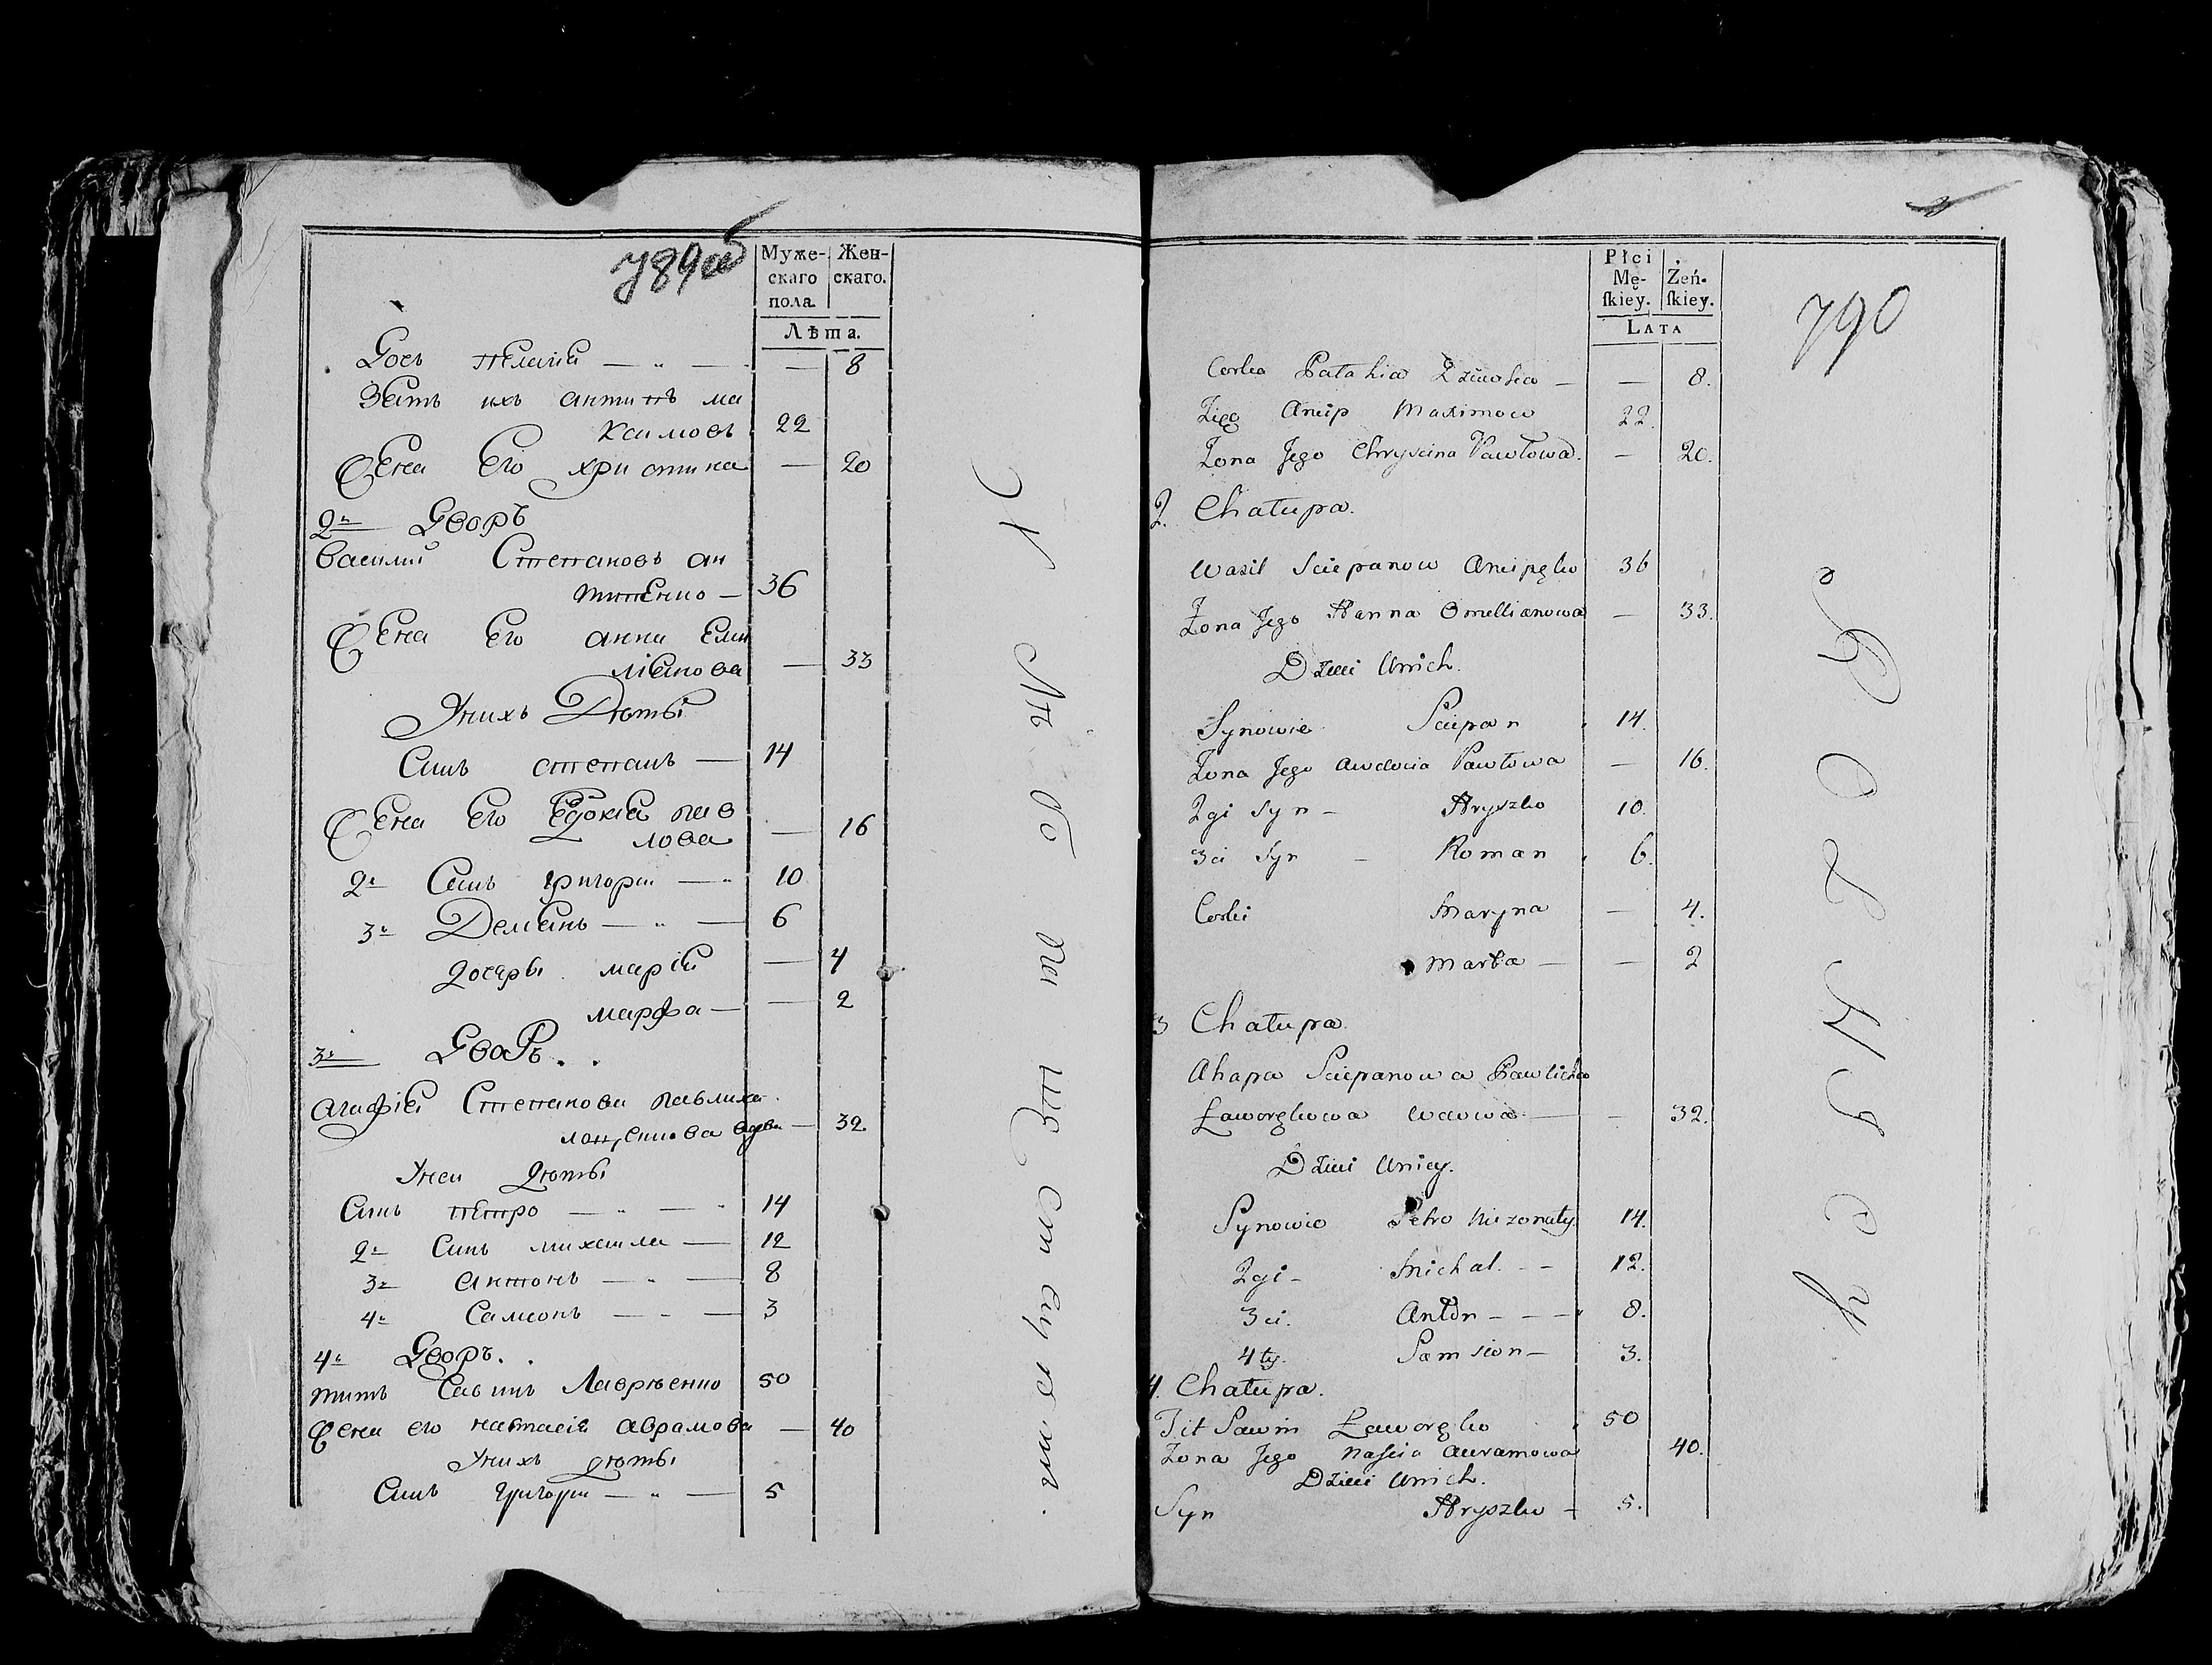 789об
Муже-
скаго
пола.
Жен-
скаго.
Лѣта.
Дочь пелагія — — 8
Зять ихъ антипъ ма
ксимовъ 22
Жена Его христина — 20
2й Дворъ
Василий Степановъ ан
типенко — 36
Жена Его анна Еми
ліянова — 33
Унихъ Дѣты
Синъ степанъ — 14
Жена Его Евдокія пав
лова — 16
2й Синъ григорій — 10
3й Демянъ — — 6
дочеры марія — 4
марфа — — 2
3й Дворъ
агафія Степанова павлиха
вдова — 32
Уней дѣты
Синъ петро — — 14
2й Синъ михаила — 12
3й антонъ — — 8
4й Самсонъ — — 3
4й Дворъ
титъ Савинъ Лаврѣенко 50
Жена его настасія аврамова — 40
Унихъ дѣты
Синъ григорій — — 5
790
Płci
Mę-
ſkiey.
Żeń-
ſkiey.
LATA
Corka Pałahia Dziewka — — 8.
Zięć Ancip Maximow 22.
Żona Jego Chryscina Pawłowa. — 20.
2. Chałupa.
Wasil Sciepanow Ancipęko 36
Żona Jego Hanna Omellianowa — 33.
Dzieci Unich.
Synowie Sciepan 14.
Żona Jego Awdocia Pawłowa — 16.
2gi Syn — Hryszko 10.
3ci Syn — Roman 6.
Corki Maryna — 4.
Marta — — 2
3 Chałupa.
Ahapa Sciepanowa Pawlicha
Ławorękowa Wdowa — — 32.
Dzieci Uniey.
Synowie Petro Nieżonaty 14.
2gi — Michał — — 12.
3ci. Anton — — — 8.
4ty. Samson — 3.
4. Chałupa.
Tit Sawin Ławoręko 50
Żona Jego Naścia Awramowa 40.
Dzieci Unich.
Syn Hryszko — 5.